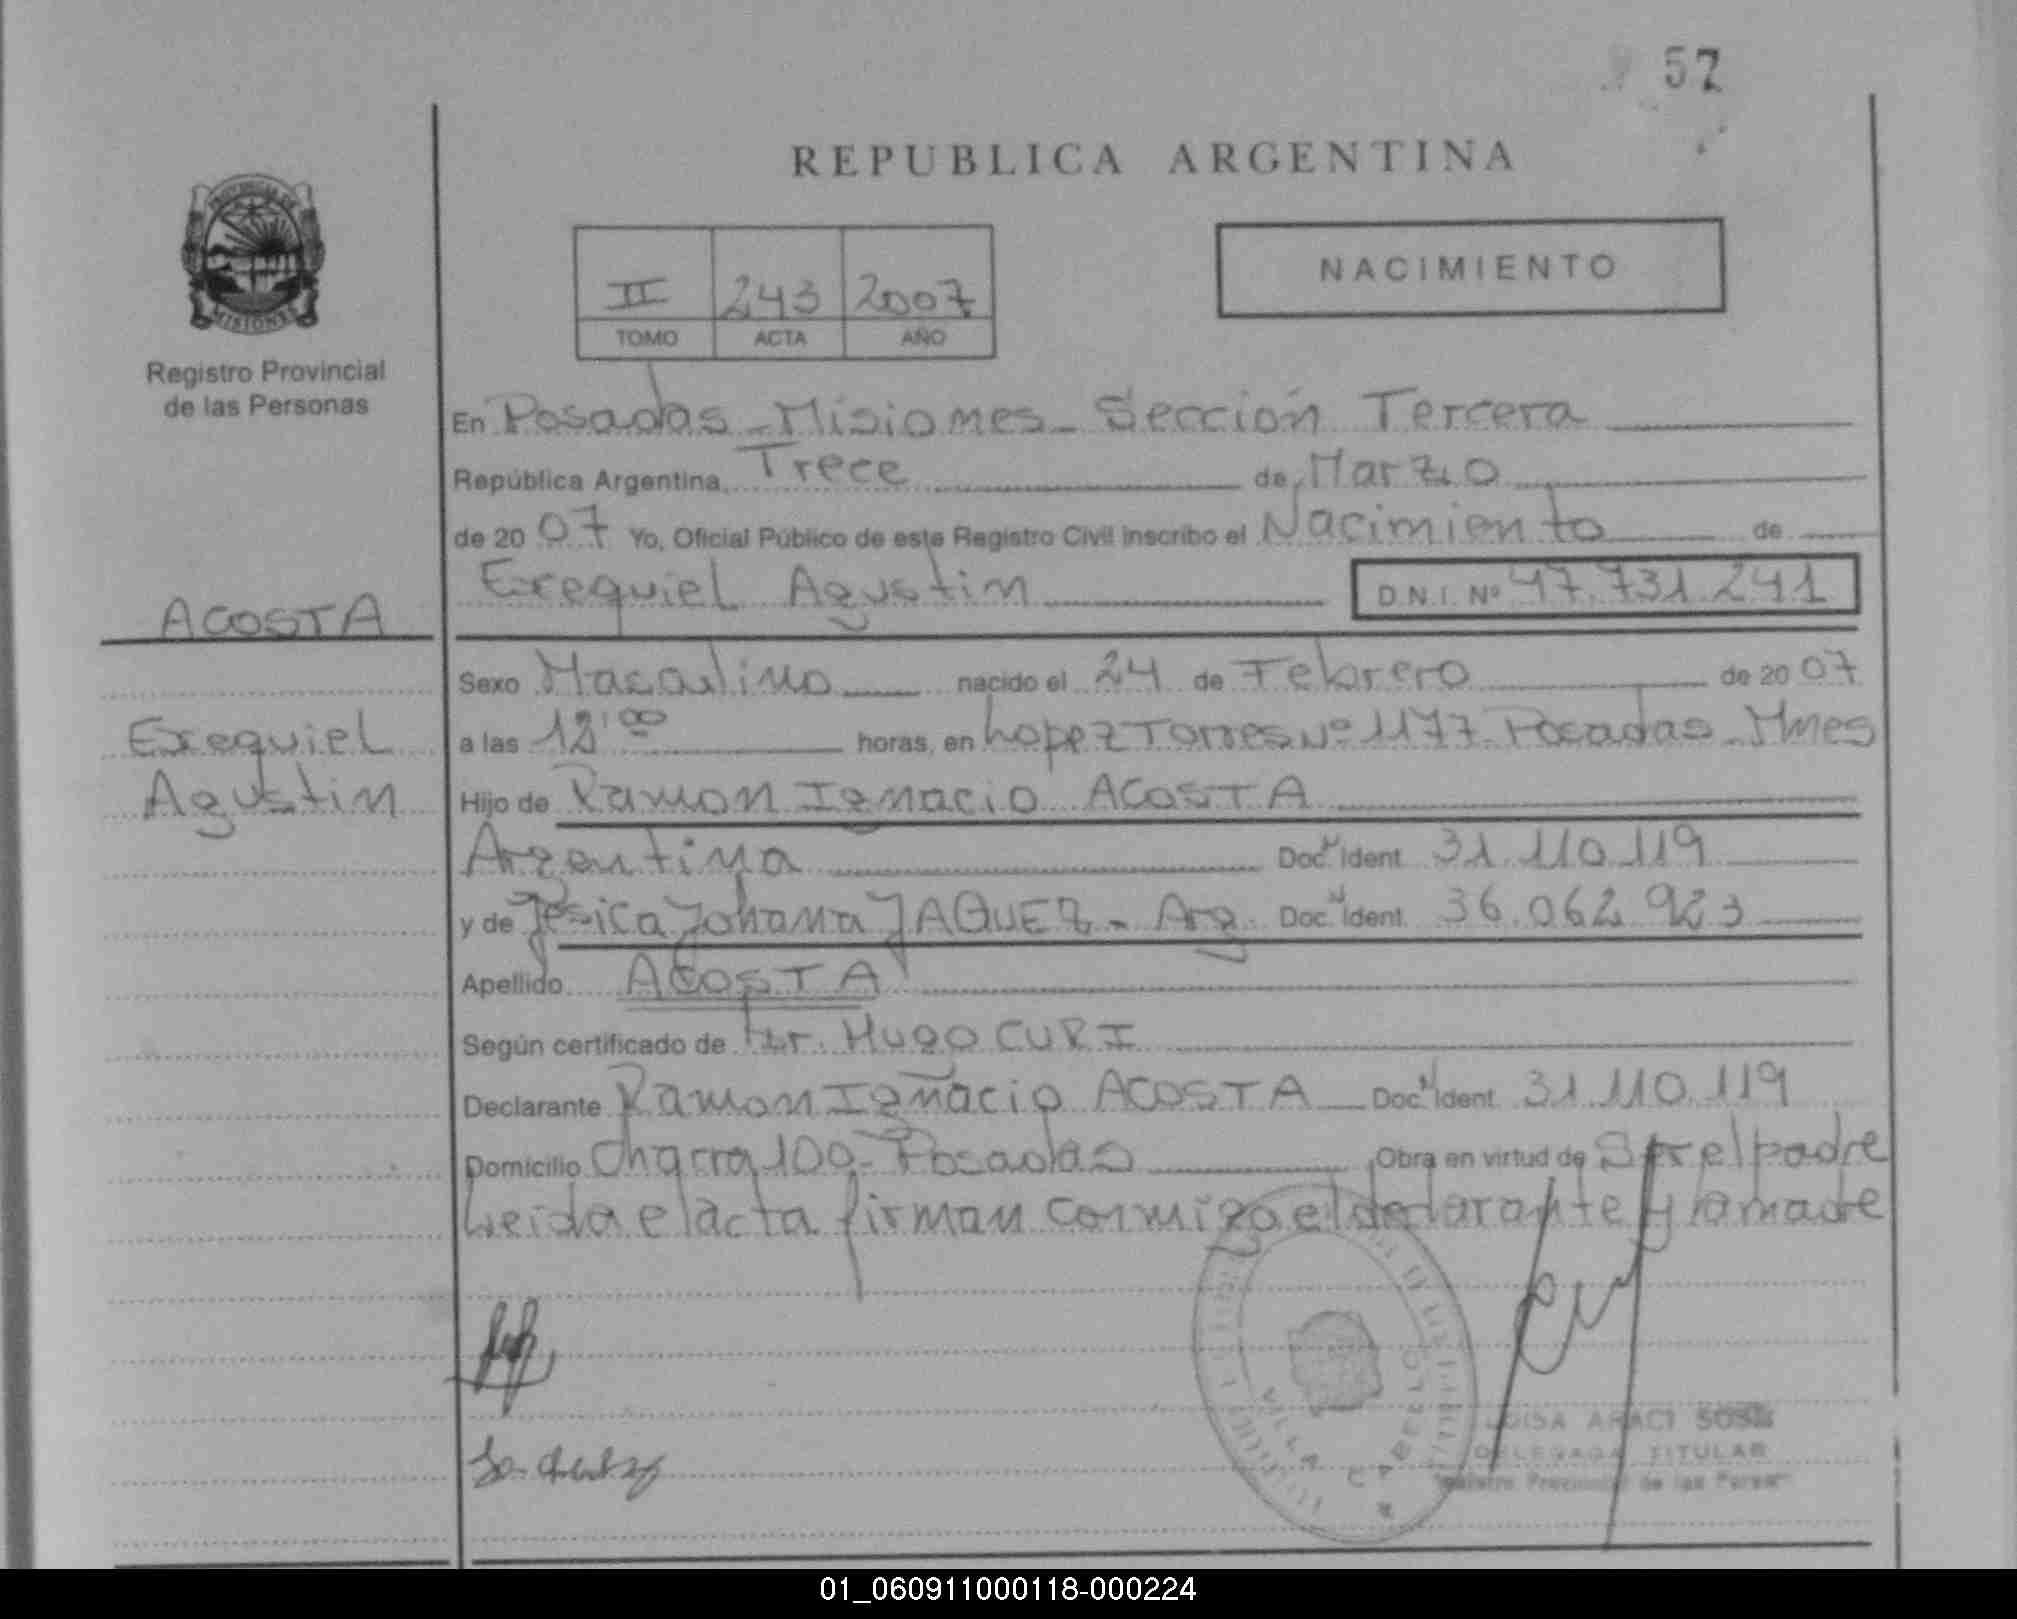 57
REPUBLICA ARGENTINA
PROVINCIA DE
MISIONES
Registro Provincial
de las Personas
II 243 2007
TOMO ACTA AÑO
NACIMIENTO
En Posadas - Misiones - Sección Tercera
República Argentina, Trece de Marzo
de 2007 Yo, Oficial Público de este Registro Civil inscribo el Nacimiento de
Exequiel Agustin D.N.I. Nº 47.731.241
ACOSTA
Exequiel
Agustin
Sexo Masculino nacido el 24 de Febrero de 2007
a las horas, en Lopez Torres Nº 1177 Posadas - Mnes
Hijo de Ramon Ignacio ACOSTA
Argentina Doc. Ident. 31.110.119
y de Jesica Johana JAQUEZ - Arg. Doc. Ident. 36.062.923
Apellido ACOSTA
Según certificado de Dr. Hugo CURI
Declarante Ramon Ignacio ACOSTA Doc. Ident. 31.110.119
Domicilio Chacra 100 - Posadas Obra en virtud de Ser el padre
Leida el acta firman conmigo el declarante y la madre
VILLA CABELLO
ARACI SOSA
DELEGADA TITULAR
Registro Provincial de las Personas
01_060911000118-000224